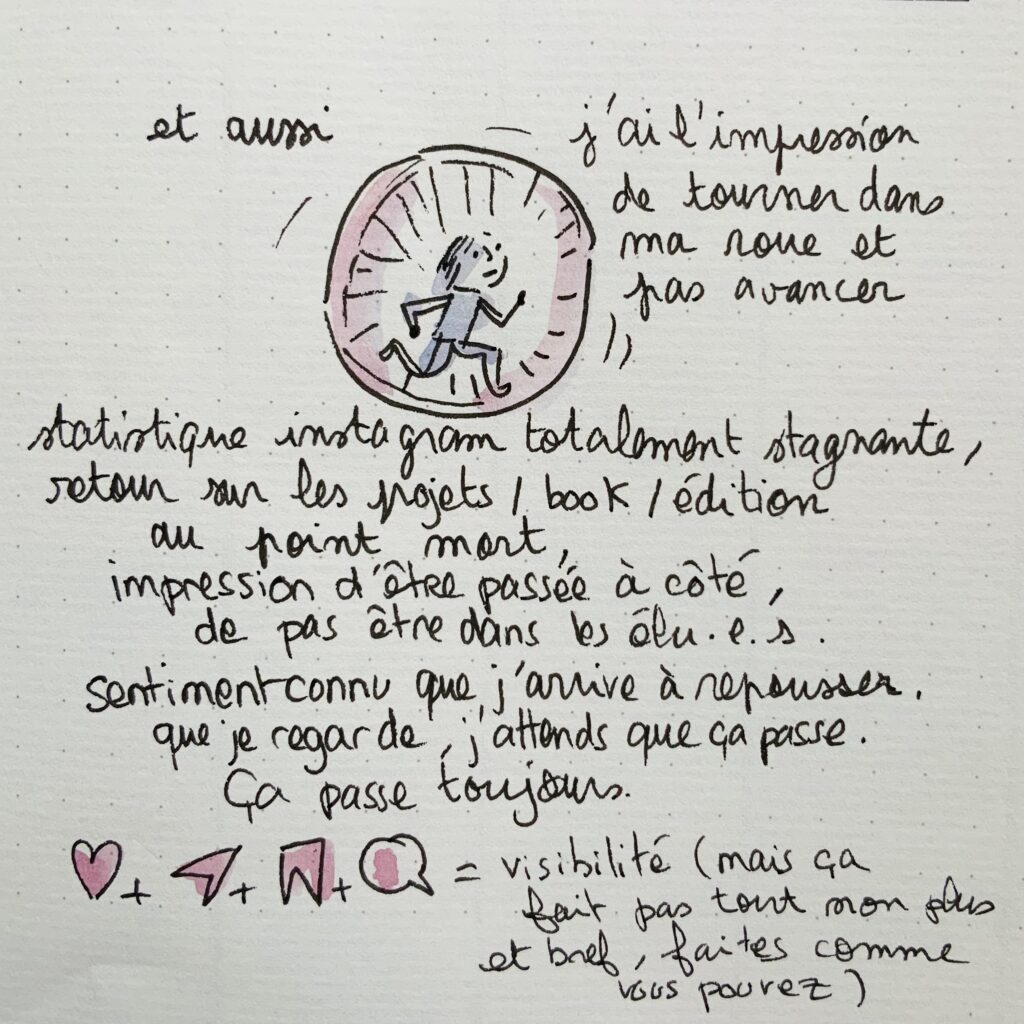 et aussi
j'ai l'impression
de tourner dans
ma roue et
pas avancer
statistique instagram totalement stagnante,
retour sur les projets / book / édition
au point mort,
impression d'être passée à côté,
de pas être dans les élu.e.s.
sentiment connu que j'arrive à repousser.
que je regarde, j'attends que ça passe.
Ça passe toujours.
+ + + = visibilité (mais ça
fait pas tout non plus
et bref, faites comme
vous pouvez)